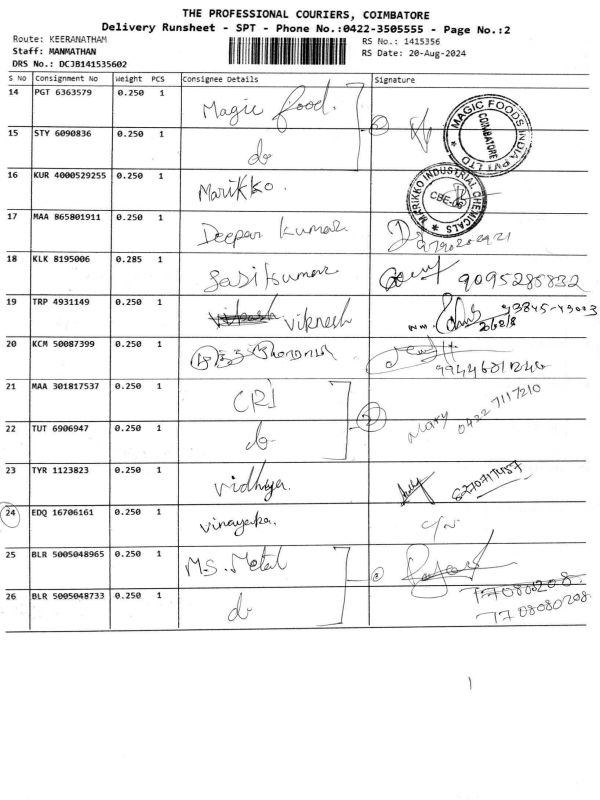 THE PROFESSIONAL COURIERS, COIMBATORE
Delivery Runsheet - SPT - Phone No.:0422-3505555 - Page No.:2
Route: KEERANATHAM RS No.: 1415356
Staff: MANMATHAN RS Date: 20-Aug-2024
DRS No.: DCJB141535602
S No Consignment No Weight PCS Consignee Details Signature
14 PGT 6363579 0.250 1 Magic food. 2
MAGIC FOODS INDIA PVT LTD
COIMBATORE
15 STY 6090836 0.250 1 do
16 KUR 4000529255 0.250 1 Marikko.
MARIKKO INDUSTRIAL CHEMICALS
CBE-06
17 MAA 865801911 0.250 1 Deepan kumar
18 KLK 8195006 0.285 1 Sasikumar 9095285832
19 TRP 4931149 0.250 1 Viknesh 93845-49003
20 KCM 50087399 0.250 1
9944601246
21 MAA 301817537 0.250 1 CRI 2 Mary 0422 7117210
22 TUT 6906947 0.250 1 do
23 TYR 1123823 0.250 1 vidhya.
24 EDQ 16706161 0.250 1 vinayaka.
25 BLR 5005048965 0.250 1 M.S. Metal
26 BLR 5005048733 0.250 1 do
7708080208.